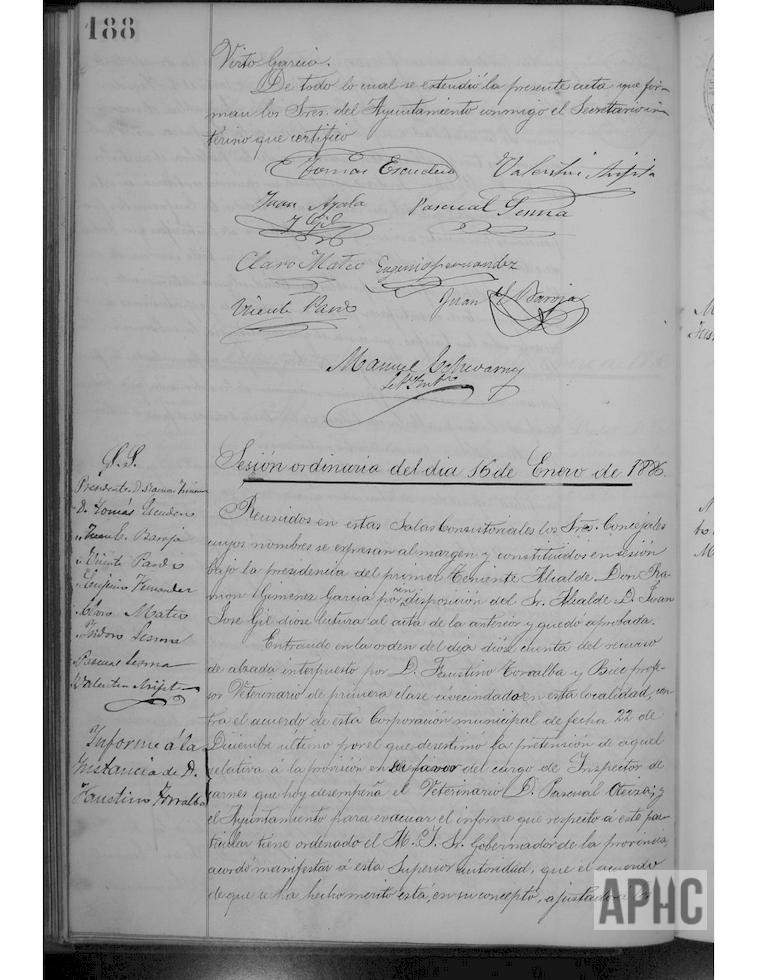 188
Virto Garcia.
De todo lo cual se extendió la presente acta que fir-
man los Sres. del Ayuntamiento conmigo el Secretario in-
terino que certifico
Tomás Escudero Valentin Aizpita
Juan Ayala
y Gil
Pascual Sesma
Claro Mateo Eugenio Fernandez
Vicente Pardo Juan Baroja
Manuel Echevarria
Sesión ordinaria del dia 16 de Enero de 1886.
S.S.
Presidente D. Ramon Gimenez
D. Tomás Escudero
Juan C. Baroja
Vicente Pardo
Eugenio Fernandez
Claro Mateo
Isidoro Sesma
Pascual Sesma
Valentin Aizpita
Reunidos en estas Salas Consistoriales los Sres. Concejales
cuyos nombres se expresan al margen y constituidos en sesión
bajo la presidencia del primer Teniente Alcalde Don Ra-
mon Gimenez Garcia por indisposición del Sr. Alcalde D. Juan
Jose Gil diose lectura al acta de la anterior y quedó aprobada.
Informe á la
instancia de D.
Faustino Torralba
Entrando en la orden del dia dióse cuenta del recurso
de alzada interpuesto por D. Faustino Torralba y Biec profe-
sor Veterinario de primera clase avecindado en esta localidad, con-
tra el acuerdo de esta Corporación municipal de fecha 22 de
Diciembre último por el que desestimó la pretensión de aquel
relativa á la provisión en su favor del cargo de Inspector de
carnes que hoy desempeña el Veterinario D. Pascual Oteiza; y
el Ayuntamiento para evacuar el informe que respecto á este par-
ticular tiene ordenado el M. I. Sr. Gobernador de la provincia,
acordó manifestar á esta Superior autoridad, que el acuerdo
de que se ha hecho merito está, en su concepto, ajustado á
APHC